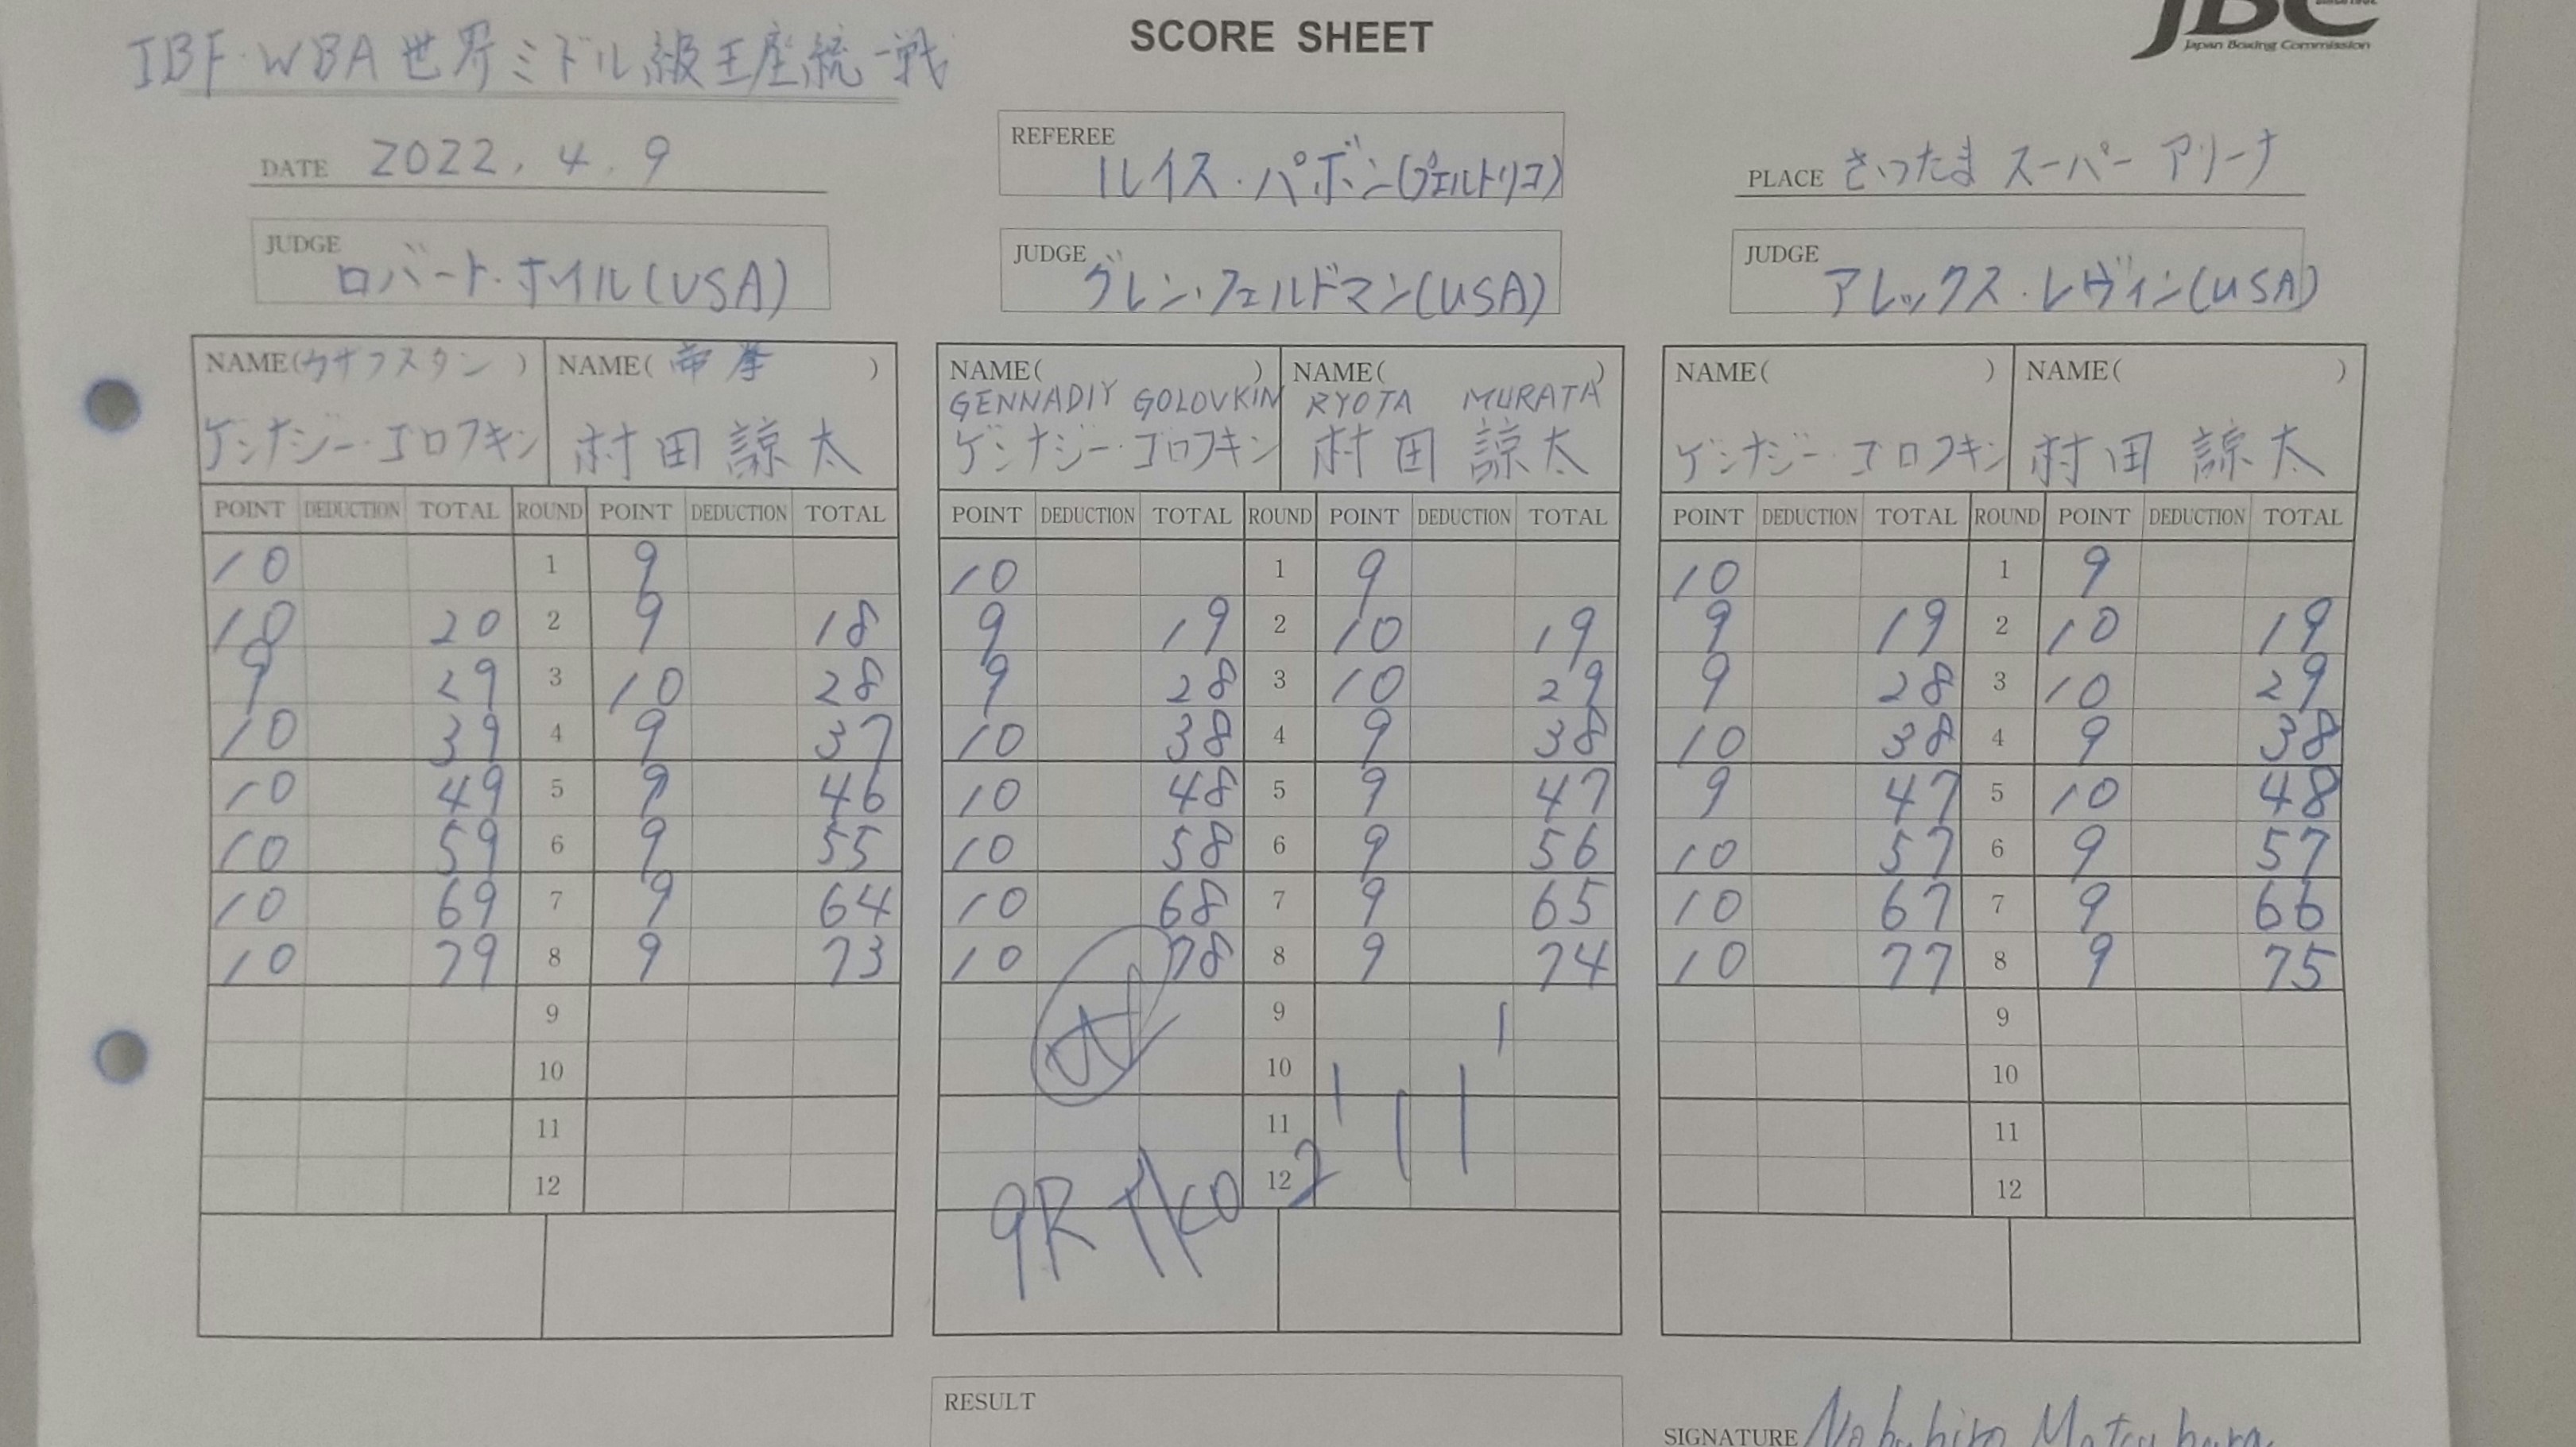 SCORE SHEET
JBC
Japan Boxing Commission
IBF・WBA世界ミドル級王座統一戦
DATE 2022.4.9
REFEREE
ルイス・パボン(プエルトリコ)
PLACE さいたまスーパーアリーナ
JUDGE
ロバート・ホイル(USA)
JUDGE
グレン・フェルドマン(USA)
JUDGE
アレックス・レヴィン(USA)
NAME(カザフスタン) NAME(帝拳)
ゲンナジー・ゴロフキン 村田諒太
POINT DEDUCTION TOTAL ROUND POINT DEDUCTION TOTAL
10 1 9
10 20 2 9 18
9 29 3 10 28
10 39 4 9 37
10 49 5 9 46
10 59 6 9 55
10 69 7 9 64
10 79 8 9 73
9
10
11
12
NAME( ) NAME( )
GENNADIY GOLOVKIN RYOTA MURATA
ゲンナジー・ゴロフキン 村田諒太
POINT DEDUCTION TOTAL ROUND POINT DEDUCTION TOTAL
10 1 9
9 19 2 10 19
9 28 3 10 29
10 38 4 9 38
10 48 5 9 47
10 58 6 9 56
10 68 7 9 65
10 78 8 9 74
9
10
11
12
9R TKO 2'11"
NAME( ) NAME( )
ゲンナジー・ゴロフキン 村田諒太
POINT DEDUCTION TOTAL ROUND POINT DEDUCTION TOTAL
10 1 9
9 19 2 10 19
9 28 3 10 29
10 38 4 9 38
9 47 5 10 48
10 57 6 9 57
10 67 7 9 66
10 77 8 9 75
9
10
11
12
RESULT
SIGNATURE Nobuhiro Matsubara